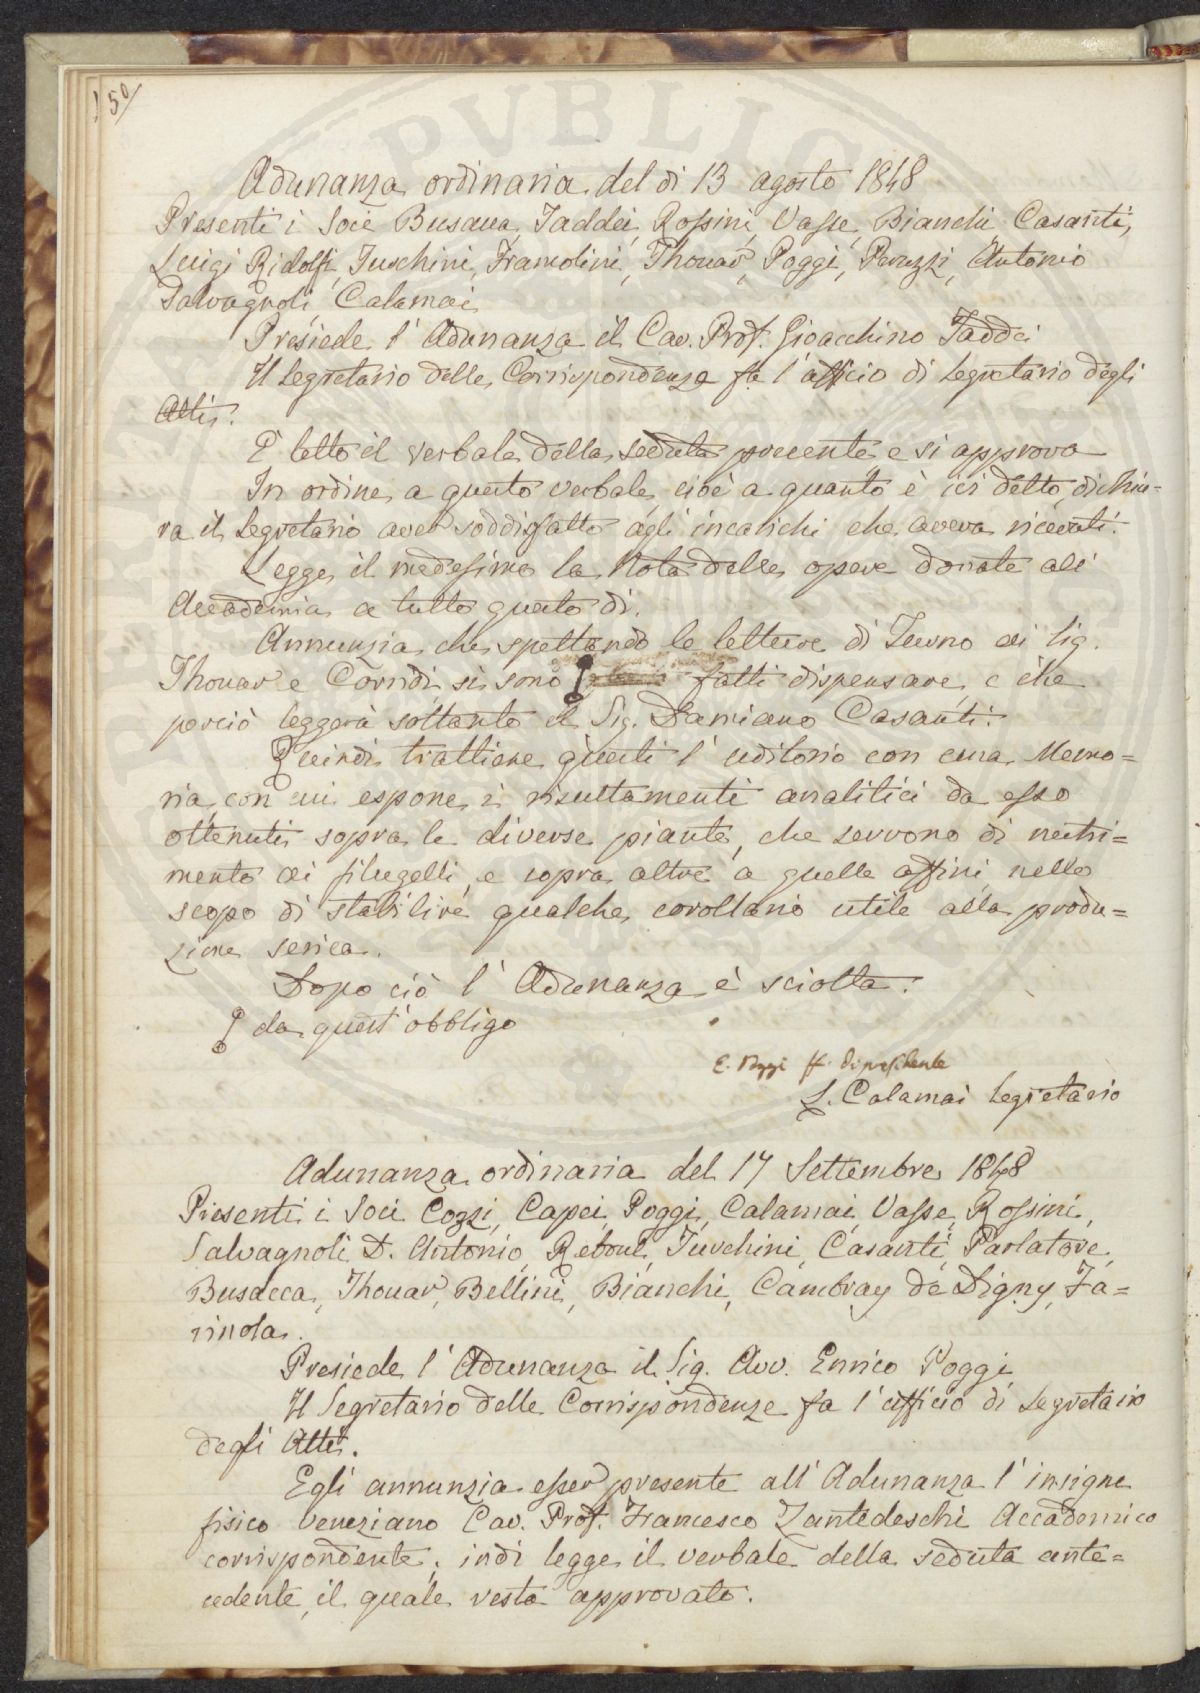 150
Adunanza ordinaria del dì 13 agosto 1848
Presenti i Soci Busacca, Taddei, Rossini, Vasse, Bianchi Casanti,
Luigi Ridolfi, Turchini, Franzolini, Thouar, Poggi, Peruzzi, Antonio
Salvagnoli, Calamai
Presiede l' Adunanza il Cav. Prof. Gioacchino Taddei
Il Segretario delle Corrispondenze fa l' officio di Segretario degli
Atti.
È letto il verbale della seduta precente e si approva
In ordine a questo verbale cioè a quanto è ivi detto dichia=
ra il Segretario aver soddisfatto agli incarichi che aveva ricevuti.
Legge il medesimo la Nota delle opere donate all'
Accademia a tutto questo dì.
Annunzia che spettando le letture di Turno ai Sig.
Thouar e Corridi si sono fatti dispensare e che
perciò leggerà soltanto il Sig. Damiano Casanti.
Quindi trattiene questi l' uditorio con una Memo=
ria con cui espone i risultamenti analitici da esso
ottenuti sopra le diverse piante, che servono di nutri=
mento ai filugelli e sopra altre a quelle affini nello
scopo di stabilire qualche corollario utile alla produ=
zione serica.
Dopo ciò l' Adunanza è sciolta.
da quest' obbligo
E. Poggi ff. di presidente
L. Calamai Segretario
Adunanza ordinaria del 17 Settembre 1848
Presenti i Soci Cozzi, Capei, Poggi, Calamai, Vasse, Rossini,
Salvagnoli D. Antonio, Reboul, Turchini, Casanti, Parlatore,
Busacca, Thouar, Bellini, Bianchi, Cambray de Digny, Fa=
rinola.
Presiede l' Adunanza il Sig. Avv. Enrico Poggi
Il Segretario delle Corrispondenze fa l' ufficio di Segretario
degli Atti.
Egli annunzia esser presente all' Adunanza l' insigne
fisico Veneziano Cav. Prof. Francesco Zantedeschi Accademico
corrispondente; indi legge il verbale della seduta ante=
cedente, il quale resta approvato.